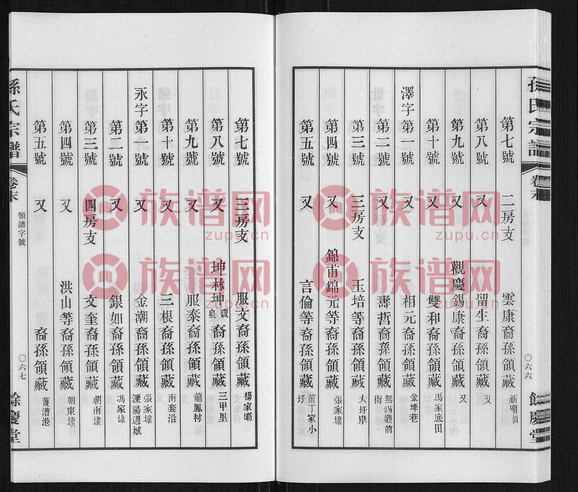 孫氏宗譜
卷末
〇六六
餘慶堂
第七號 二房支 雲康裔孫領藏
第八號 又 留生裔孫領藏 又
第九號 又 觀慶錫康裔孫領藏 又
第十號 又 雙和裔孫領藏 馬家底田
澤字第一號 又 相元裔孫領藏 金埄巷
第二號 又 壽哲裔孫領藏 無錫緞前街
第三號 三房支 玉培等裔孫領藏 大圩岸
第四號 又 錦甫錦元等裔孫領藏 張家埭
第五號 又 言倫等裔孫領藏 前丁家小圩
第七號 三房支 服文裔孫領藏 楊家嘴
第八號 又 坤林坤裔孫領藏 三甲里
第九號 又 服泰裔孫領藏 龍鳳村
第十號 又 三根裔孫領藏 南套沿
永字第一號 又 金潮裔孫領藏 張家埭溧陽週城
第二號 又 銀如裔孫領藏 馮家埭
第三號 四房支 文奎裔孫領藏 朝南埭
第四號 又 洪山等裔孫領藏 朝東埭
第五號 又 裔孫領藏 舊漕港
孫氏宗譜
卷末
領譜字號
〇六七
餘慶堂
族谱网
zupu.cn
族谱网
zupu.cn
族谱网
族谱网